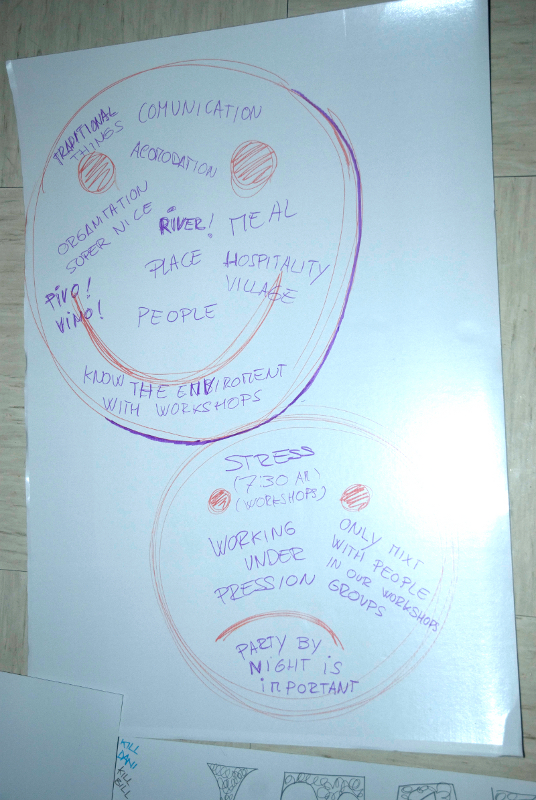 TRADITIONAL
THINGS
COMUNICATION
ACOMODATION
ORGANITATION
SUPER NICE
RIVER!
MEAL
PLACE
HOSPITALITY
VILLAGE
PIVO!
VINO!
PEOPLE
KNOW THE ENVIROMENT
WITH WORKSHOPS
STRESS
(7:30 AM)
(WORKSHOPS)
WORKING
UNDER
PRESSION
ONLY MIXT
WITH PEOPLE
IN OUR WORKSHOPS
GROUPS
PARTY BY
NIGHT IS
IMPORTANT
KILL
DANI
KILL
BILL